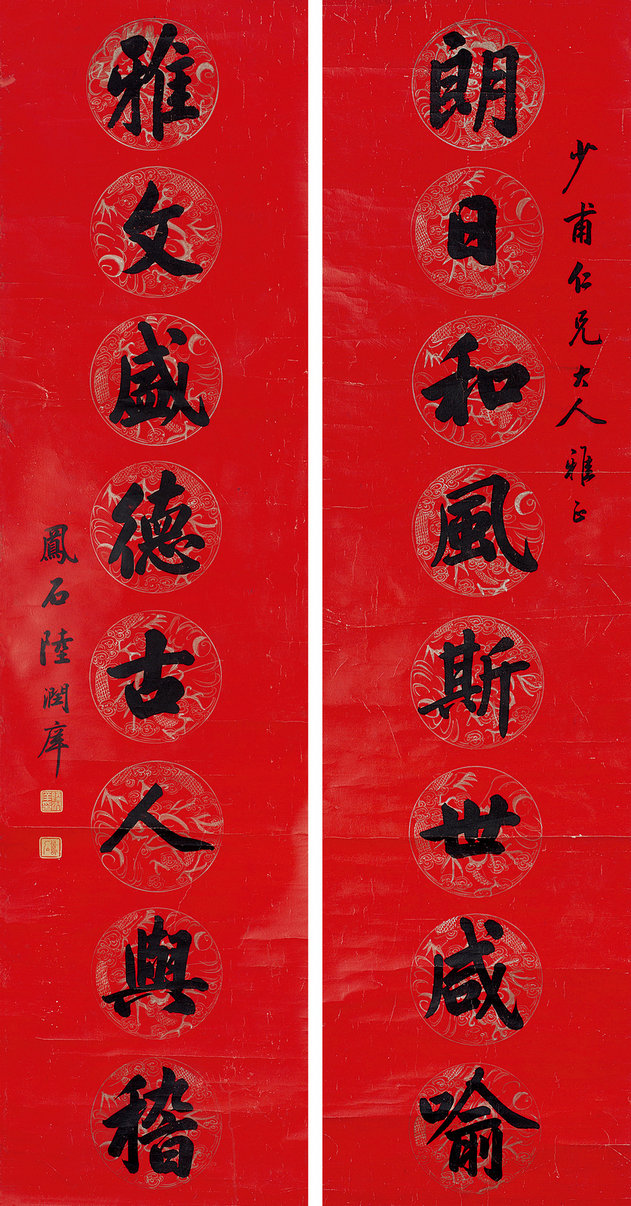 少甫仁兄大人雅正
朗日和風斯世咸喻
雅文盛德古人與稽
鳳石陸潤庠